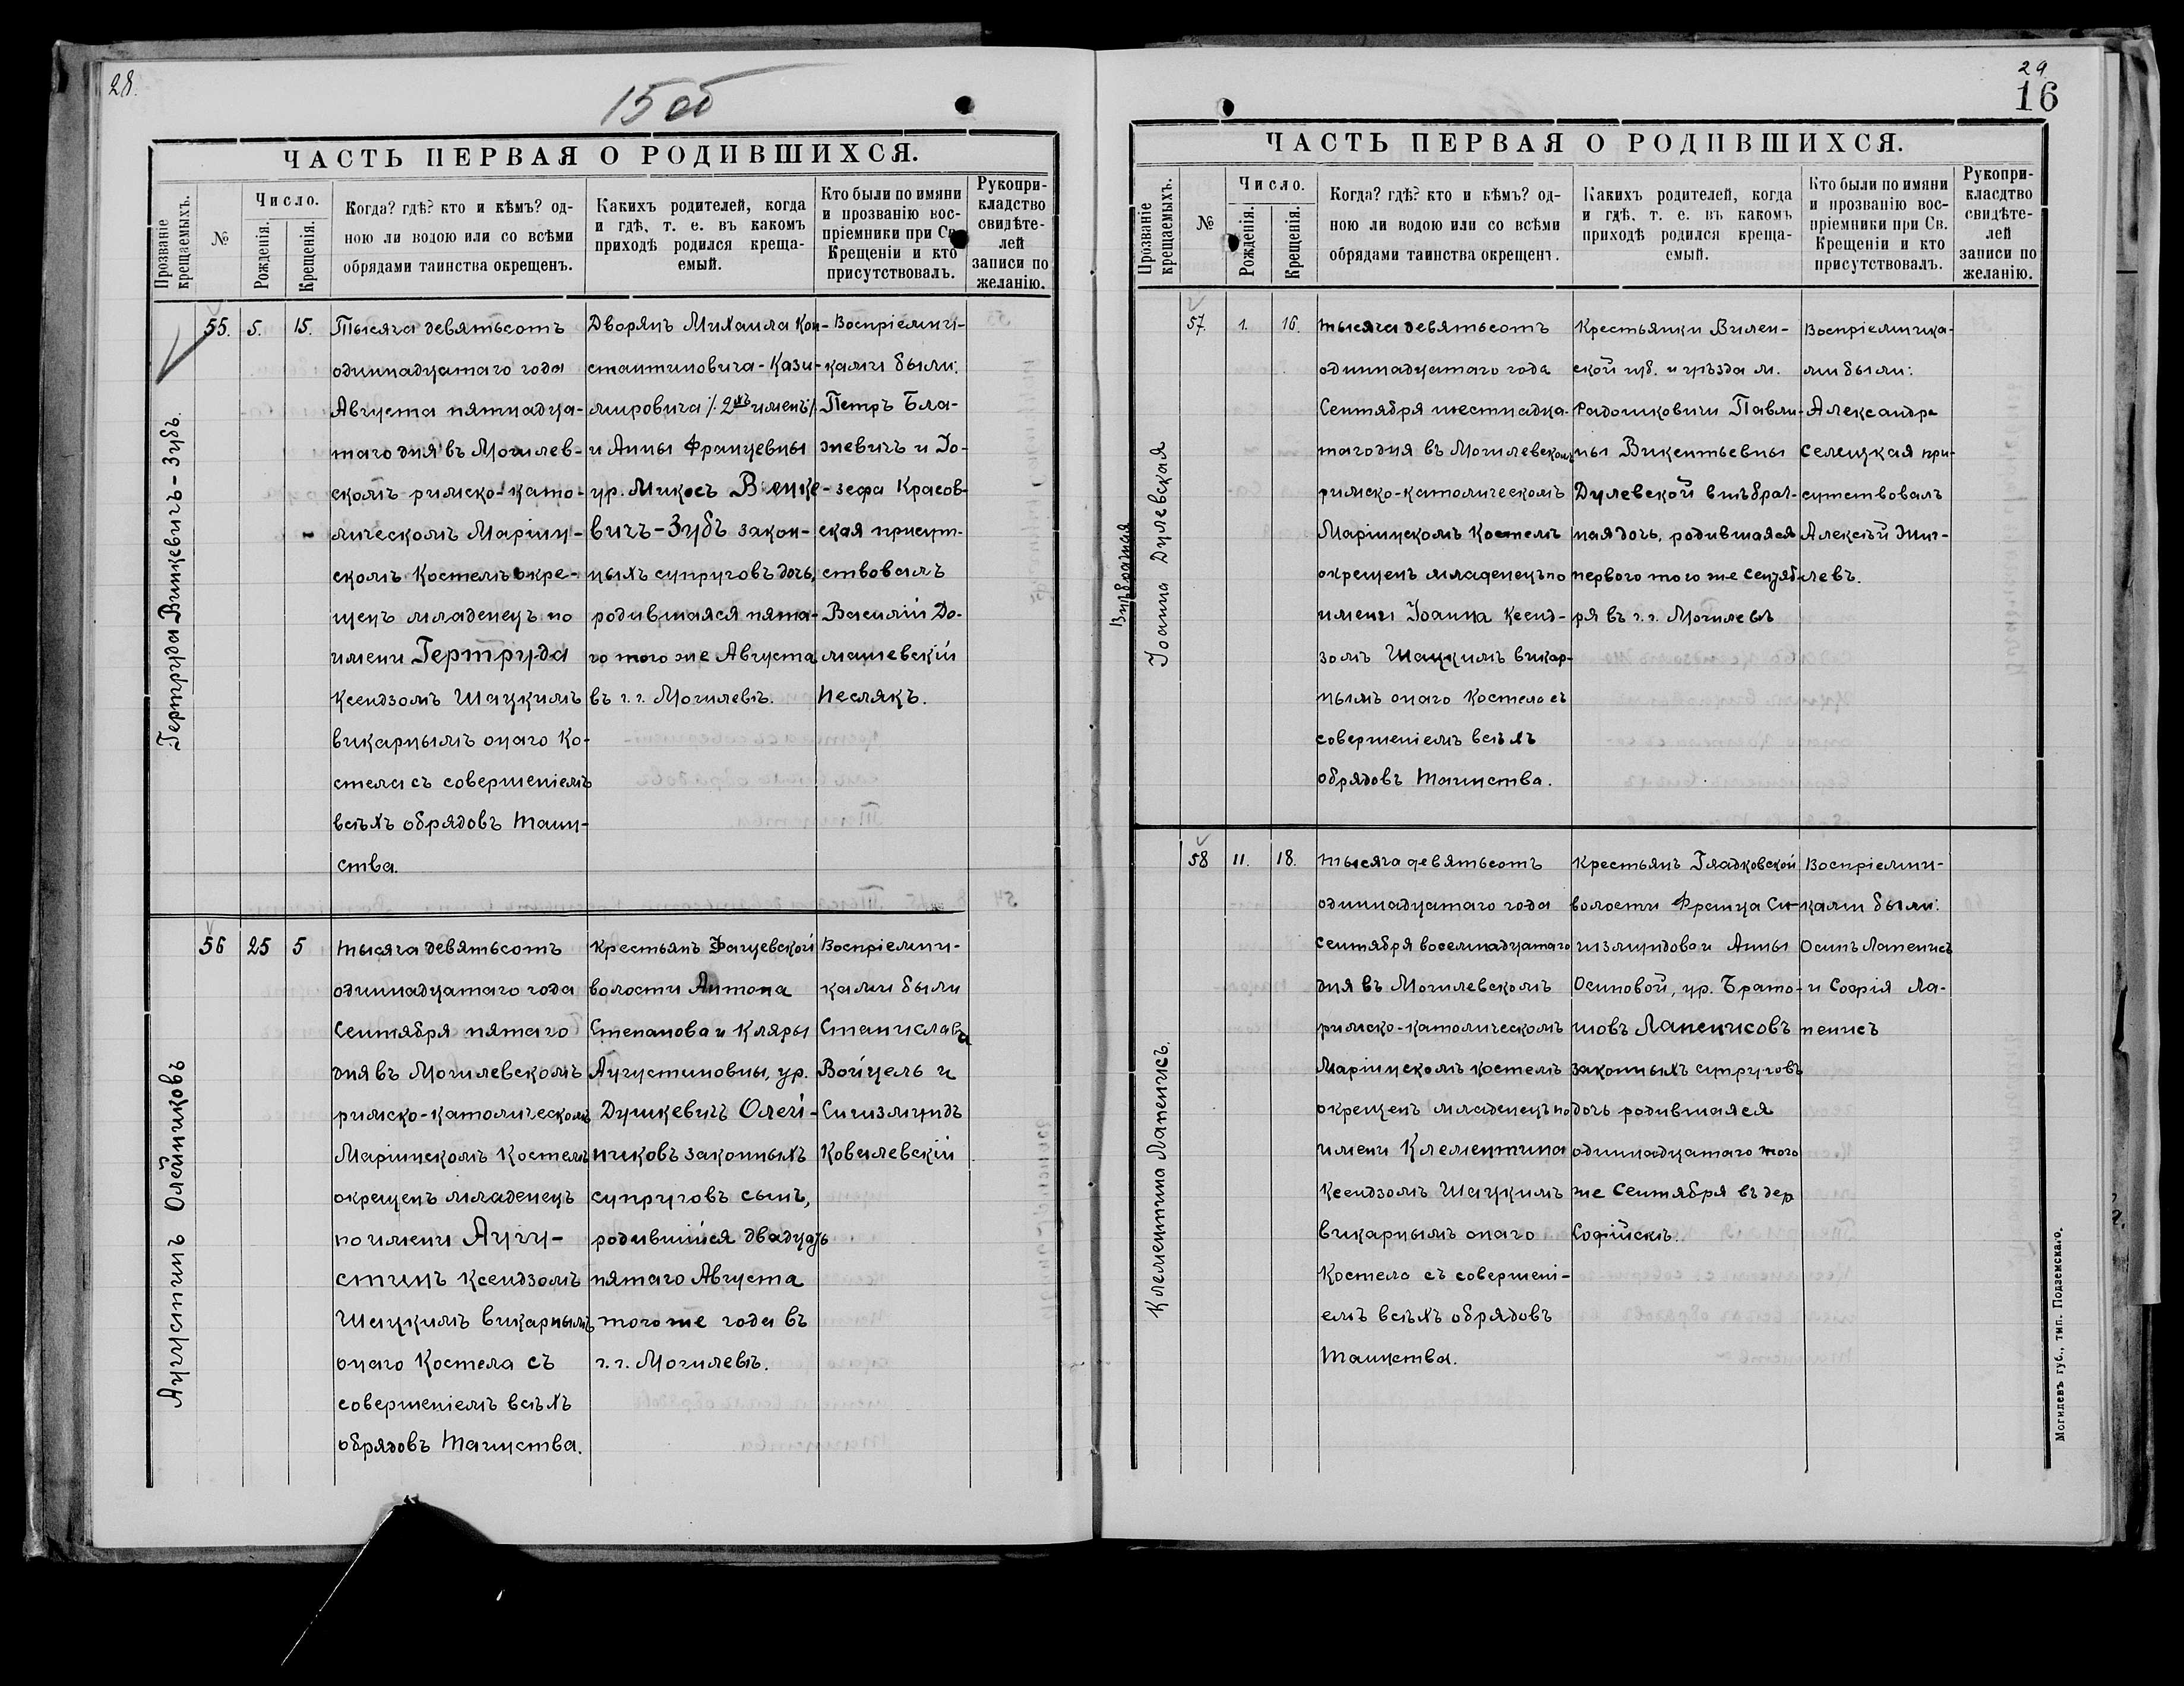 28.
15 об
ЧАСТЬ ПЕРВАЯ О РОДИВШИХСЯ.
Прозваніе крещаемыхъ.
№
Число.
Рожденія.
Крещенія.
Когда? гдѣ? кто и кѣмъ? од-
ною ли водою или со всѣми
обрядами таинства окрещенъ.
Какихъ родителей, когда
и гдѣ, т. е. въ какомъ
приходѣ родился креща-
емый.
Кто были по имяни
и прозванію вос-
пріемники при Св.
Крещеніи и кто
присутствовалъ.
Рукопри-
кладство
свидѣте-
лей
записи по
желанію.
Гертруда Винкевичъ-Зубъ.
55.
5.
15.
Тысяча девятьсотъ
одиннадцатаго года
Августа пятнадца-
таго дня въ Могилев-
скомъ римско-като-
лическомъ Маріин-
скомъ Костелѣ окре-
щенъ младенецъ по
имени Гертруда
Ксендзомъ Шацкимъ
викарнымъ онаго Ко-
стела съ совершеніемъ
всѣхъ обрядовъ Таин-
ства.
Дворянъ Михаила Кон-
стантиновича-Кази-
мировича /. 2хъ именъ /.
и Анны Францевны
ур. Микосъ Венке-
вичъ-Зубъ закон-
ныхъ супруговъ дочь,
родившаяся пята-
го того же Августа
въ г. г. Могилевѣ.
Воспріемни-
ками были:
Петръ Бла-
жевичъ и Іо-
зефа Красов-
ская присут-
ствовалъ
Василій До-
машевскій
Песлякъ.
Аугустинъ Олейниковъ
56
25
5
Тысяча девятьсотъ
одиннадцатаго года
Сентября пятаго
дня въ Могилевскомъ
римско-католическомъ
Маріинскомъ Костелѣ
окрещенъ младенецъ
по имени Аугу-
стинъ Ксендзомъ
Шацкимъ викарнымъ
онаго Костела съ
совершеніемъ всѣхъ
обрядовъ Таинства.
Крестьянъ Фащевской
волости Антона
Степанова и Кляры
Аугустиновны, ур.
Душкевичъ Олей-
никовъ законныхъ
супруговъ сынъ,
родившійся двадцать
пятаго Августа
того же года въ
г. г. Могилевѣ.
Воспріемни-
ками были
Станислава
Войцель и
Сигизмундъ
Ковалевскій
29
16
ЧАСТЬ ПЕРВАЯ О РОДИВШИХСЯ.
Прозваніе крещаемыхъ.
№
Число.
Рожденія.
Крещенія.
Когда? гдѣ? кто и кѣмъ? од-
ною ли водою или со всѣми
обрядами таинства окрещенъ.
Какихъ родителей, когда
и гдѣ, т. е. въ какомъ
приходѣ родился креща-
емый.
Кто были по имяни
и прозванію вос-
пріемники при Св.
Крещеніи и кто
присутствовалъ.
Рукопри-
класдтво
свидѣте-
лей
записи по
желанію.
Внѣбрачная
Іоанна Дулевская
57.
1.
16.
Тысяча девятьсотъ
одиннадцатаго года
Сентября шестнадца-
таго дня въ Могилевскомъ
римско-католическомъ
Маріинскомъ Костелѣ
окрещенъ младенецъ по
имени Іоанна Ксенд-
зомъ Шацкимъ викар-
нымъ онаго Костела съ
совершеніемъ всѣхъ
обрядовъ Таинства.
Крестьянки Вилен-
ской губ. и уѣзда м.
Радошковичи Павли-
ны Викентьевны
Дулевской внѣбрач-
ная дочь, родившаяся
первого того же Сентяб-
ря въ г. г. Могилевѣ
Воспріемника-
ми были:
Александра
Селецкая при-
сутствовалъ
Алексѣй Жиг-
левъ.
Клементина Лапенисъ.
58
11.
18.
Тысяча девятьсотъ
одиннадцатаго года
Сентября восемнадцатаго
дня въ Могилевскомъ
римско-католическомъ
Маріинскомъ костелѣ
окрещенъ младенецъ по
имени Клементина
Ксендзомъ Шацкимъ
викарнымъ онаго
Костела съ совершені-
емъ всѣхъ обрядовъ
Таинства.
Крестьянъ Гладковской
волости Франца Си-
гизмундова и Анны
Осиповой, ур. Брато-
шовъ Лапенисовъ
законныхъ супруговъ
дочь родившаяся
одиннадцатаго того
же Сентября въ дер
Софійскѣ.
Воспріемни-
ками были:
Осипъ Лапенисъ
и Софія Ла-
пенисъ
Могилевъ губ., тип. Подземскаго.